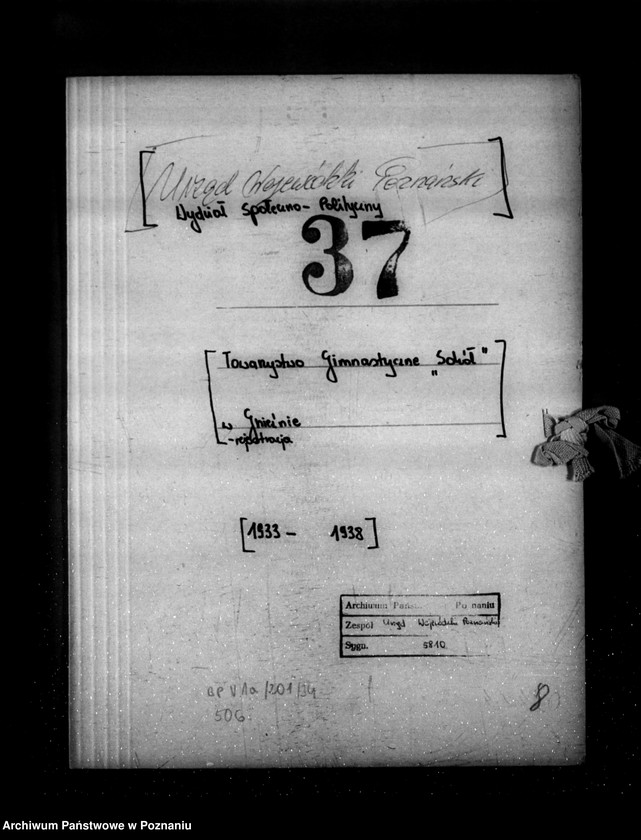 [Urząd Wojewódzki Poznański
Wydział Społeczno-Polityczny]
37
[Towarzystwo Gimnastyczne „Sokół"
w Gnieźnie
-rejestracja]
[1933 - 1938]
Archiwum Pańs Poznaniu
Zespół Urząd Wojewódzki Poznański
Sygn. 5810
BP V 1a/201/34
506
8
Archiwum Państwowe w Poznaniu